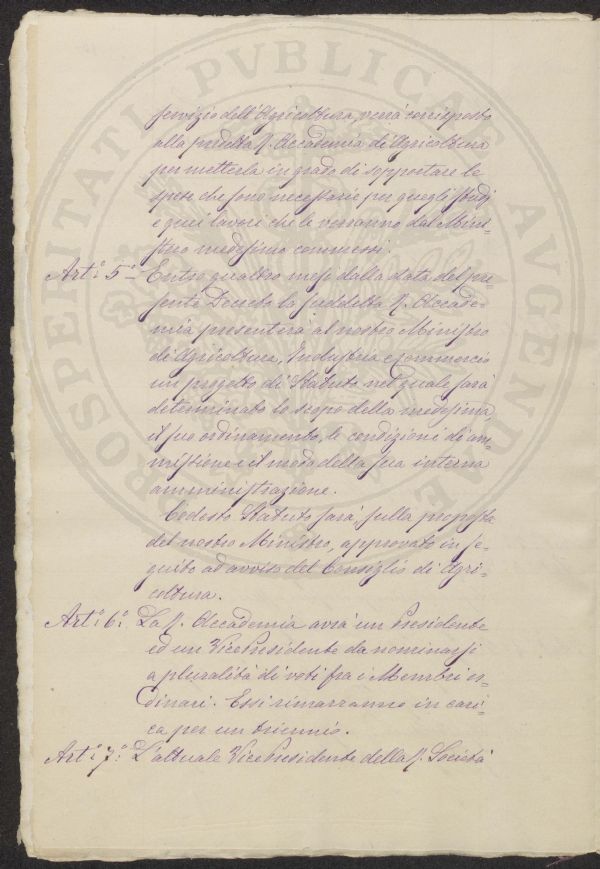 PROSPERITATI PVBLICAE AVGENDAE
servizio dell'Agricoltura, verrà corrisposto
alla predetta R. Accademia di Agricoltura
per metterla in grado di sopportare le
spese che sono necessarie per quegli studj
e quei lavori che le verranno dal Mini=
stero medesimo commessi.
Art.° 5.° Entro quattro mesi dalla data del pre=
sente Decreto la suddetta R. Accade=
mia presenterà al nostro Ministro
di Agricoltura, Industria e Commercio
un progetto di Statuto nel quale sarà
determinato lo scopo della medesima,
il suo ordinamento, le condizioni di am=
missione e il modo della sua interna
amministrazione.
Codesto Statuto sarà, sulla proposta
del nostro Ministro, approvato in se=
guito ad avviso del Consiglio di Agri=
coltura.
Art.° 6.° La R. Accademia avrà un Presidente
ed un Vice Presidente da nominarsi
a pluralità di voti fra i Membri or=
dinari. Essi rimarranno in cari=
ca per un triennio.
Art.° 7.° L'attuale Vice Presidente della R. Società